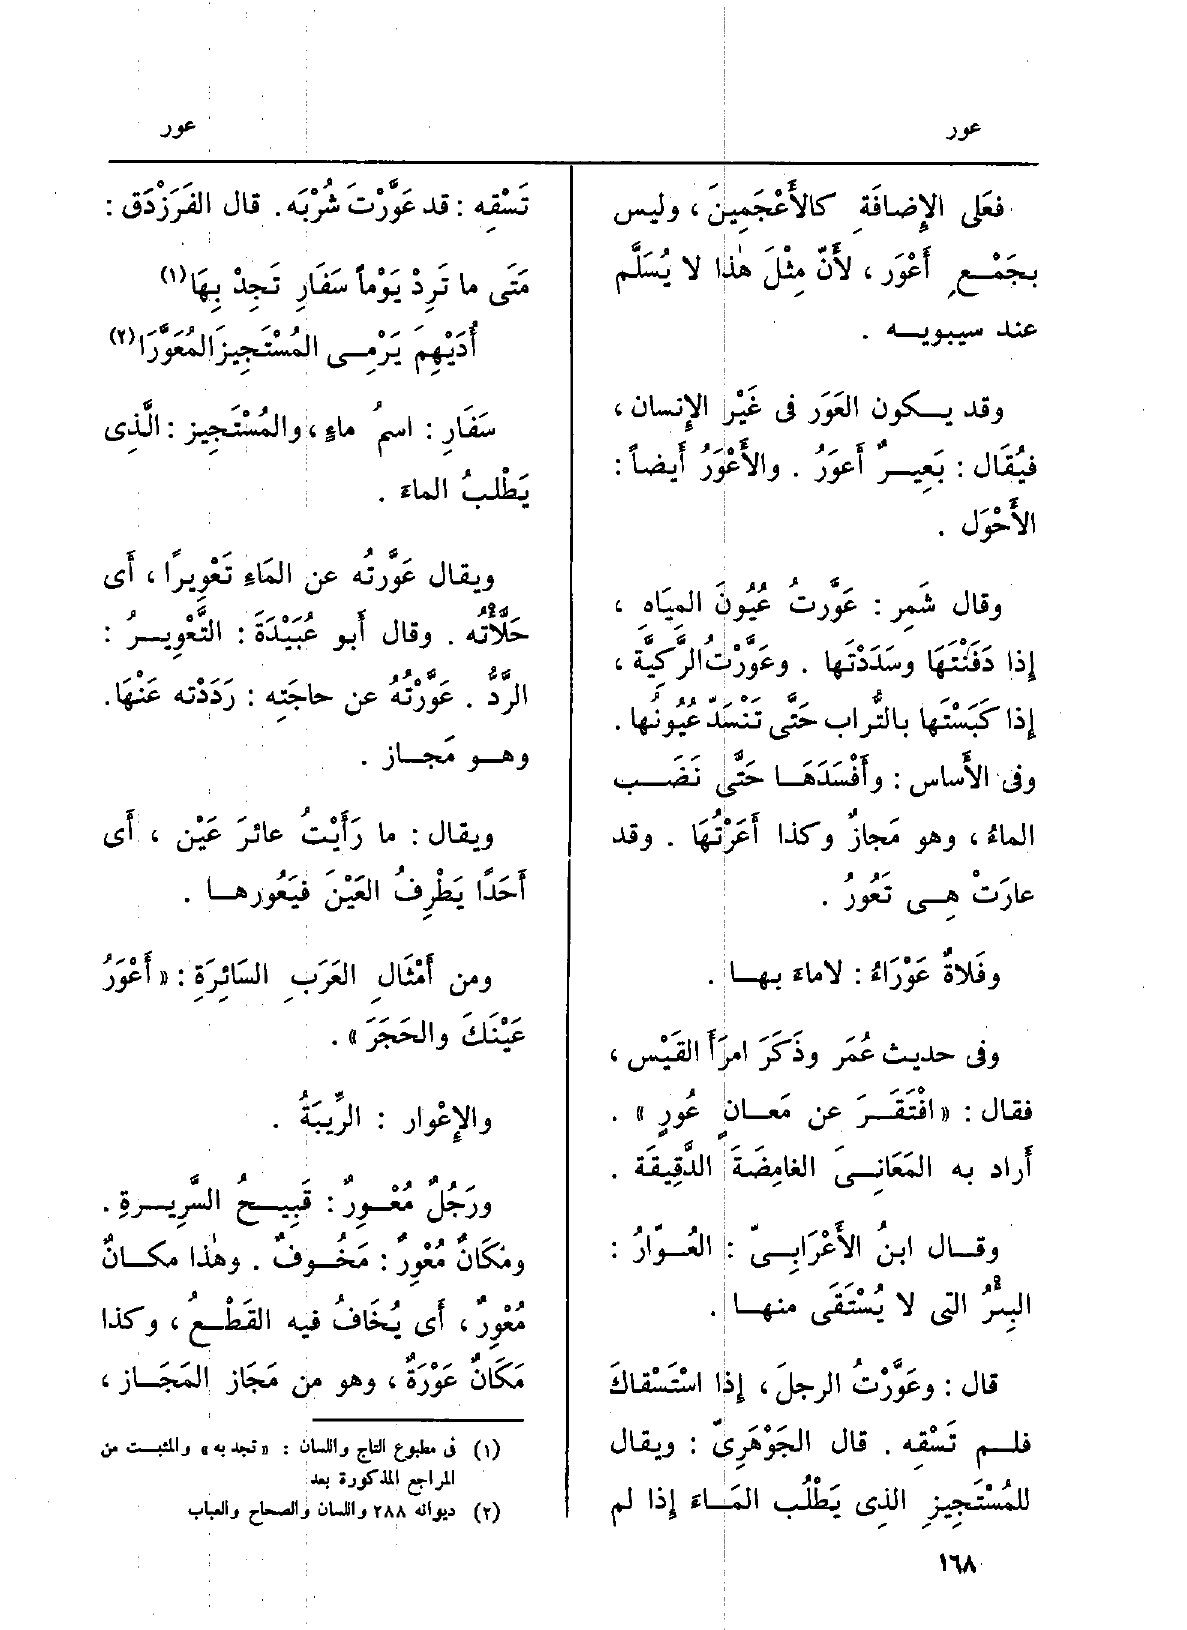 عور
عور
فعَلى الإِضافَةِ كالأَعْجَمِينَ، وليس
بجَمْعِ أَعْوَر، لأَنّ مِثْلَ هٰذا لا يُسَلَّم
عند سيبويه .
وقد يكون العَوَر فى غَيْرِ الإِنسان،
فيُقَال : بَعِيرٌ أَعوَرُ . والأَعْوَرُ أَيضاً :
الأَحْوَل .
وقال شَمِر : عَوَّرتُ عُيُونَ المِيَاهِ ،
إِذا دَفَنْتَهَا وسَدَدْتَها . وعَوَّرْتُ الرَّكِيَّة ،
إِذا كَبَسْتَها بالتُّراب حَتَّى تَنْسَدّ عُيُونُها .
وفى الأَساس : وأَفْسَدَهَا حَتَّى نَضَب
الماءُ، وهو مَجازٌ وكذا أَعَرْتُهَا . وقد
عارَتْ هِى تَعُورُ .
وفَلاةٌ عَوْرَاءُ : لاماءَ بها .
وفى حديث عُمَر وذَكَرَ امرَأَ القَيْس ،
فقال : « افْتَقَرَ عن مَعانٍ عُورٍ » .
أَراد به المَعَانِىَ الغامِضَةَ الدَّقِيقَة .
وقال ابنُ الأَعْرَابِىّ : العُوّارُ :
البِئْرُ التى لا يُسْتَقَى منها .
قال : وعَوَّرْتُ الرجلَ ، إِذا اسْتَسْقاكَ
فلم تَسْقِه . قال الجَوْهَرِىّ : ويقال
للمُسْتَجِيزِ الذِى يَطْلُب المَاءَ إِذا لم
تَسْقِه : قد عَوَّرْتَ شُرْبَه . قال الفَرَزْدَق :
مَتَى ما تَرِدْ يَوْماً سَفَارِ تَجِدْ بِهَا(١)
أُدَيْهِمَ يَرْمِى المُسْتَجِيزَ المُعَوَّرَا(٢)
سَفَارِ : اسمُ ماءٍ ، والمُسْتَجِيز : الَّذِى
يَطْلبُ الماءَ .
ويقال عَوَّرتُه عن المَاءِ تَعْوِيرًا ، أَى
حَلَّأْتُه . وقال أَبو عُبَيْدَةَ : التَّعْوِيرُ :
الرَّدُّ . عَوَّرْتُهُ عن حاجَتِه : رَدَدْته عَنْهَا.
وهو مَجاز .
ويقال : ما رَأَيْتُ عائرَ عَيْنٍ ، أَى
أَحَدًا يَطْرِفُ العَيْنَ فيَعُورها .
ومن أَمْثَالِ العَرَبِ السَّائِرَةِ : « أَعْوَرُ
عَيْنَكَ والحَجَرَ » .
والإِعْوار : الرِّيبَةُ .
ورَجُلٌ مُعْوِرٌ : قَبِيحُ السَّرِيرةِ .
ومَكَانٌ مُعْوِرٌ : مَخُوفٌ . وهٰذا مكانٌ
مُعْوِرٌ ، أَى يُخَافُ فيه القَطْعُ ، وكذا
مَكَانٌ عَوْرَةٌ ، وهو من مَجَاز المَجَاز ،
(١) فى مطبوع التاج واللسان : « تجد به » والمثبت من
المراجع المذكورة بعد
(٢) ديوانه ٢٨٨ واللسان والصحاح والعباب
١٦٨